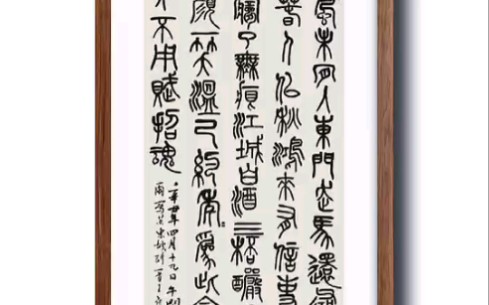 風未肯入東門走馬還尋
人似秋鴻來有信事
夢了無痕江城白酒三杯釅
顏一笑溫已約年為此會
人不用賦招魂
年四月十九日午